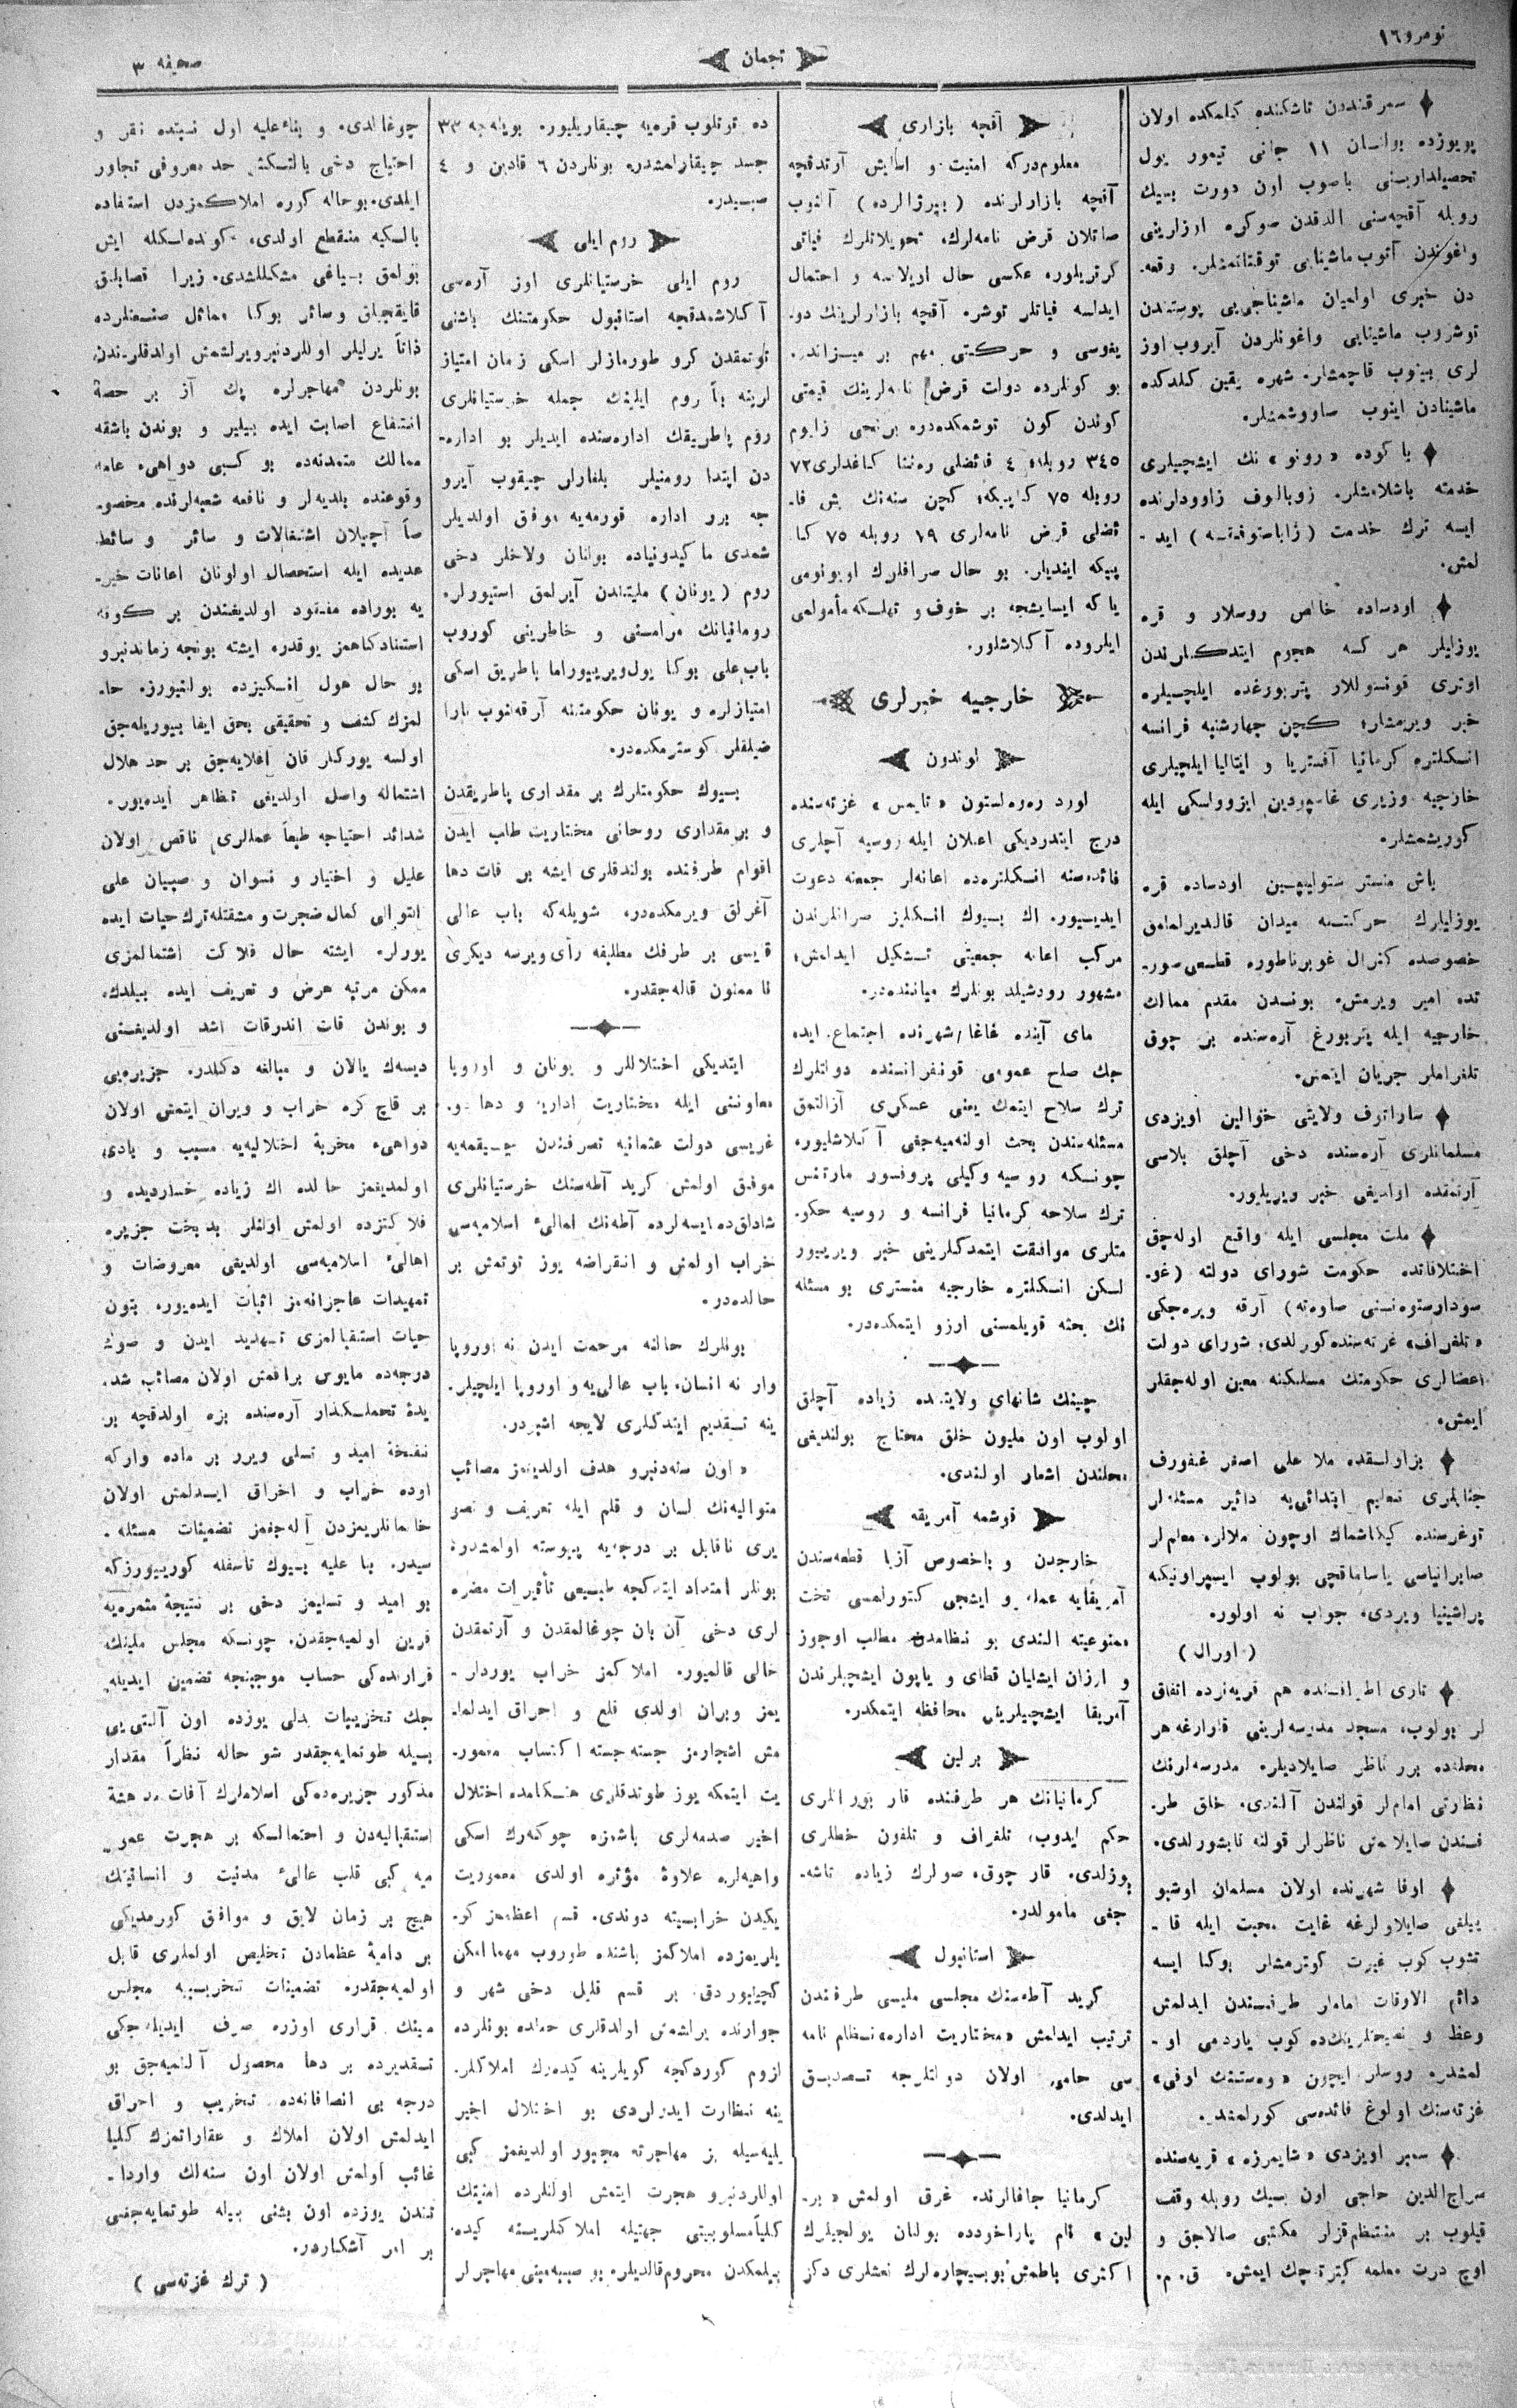 نومرو ١٦
ترجمان
صحیفه ٣
سمرقنددن تاشكنده كیلمكده اولان
پویوزده بولنسان ١١ جانی تیمور یول
تحصیلداریسنی باصوب اون دورت بییك
روبله آقچه‌سنی الدقدن صوكره اوزارینی
واغوندن آتوب ماشینایی توقتاتمشلر. وقعه-
دن خبری اولمیان ماشیناجی‌یی پوسته‌دن
توشروب ماشینایی واغونلردن آیروب اوز
لری بینوب قاچمشلر. شهره یقین كلدكده
ماشینادن اینوب صاووشمشلر.
باكوده «رونو» نك ایشچیلری
خدمته باشلامشلر. زوبالوف زاوودلرنده
ایسه ترك خدمت (زاباستوفقه) اید-
لمش.
اودساده خالص روسلار و قره
یوزلیلر هر كسه هجوم ایتدكلرندن
اوتری قونسوللار پتربورغده ایلچیلره
خبر ویرمشلر؛ كچن چهارشنبه فرانسه
انكلتره كرمانیا آفستریا و ایتالیا ایلچیلری
خارجیه وزیری غاسپودین ایزوولسكی ایله
كوریشمشلر.
باش منستر ستولیپین اودساده قره
یوزلیلرك حركتنه میدان قالدیرلمامق
خصوصده كنرال غوبرناطوره قطعی صور-
تده امیر ویرمش. بوندن مقدم ممالك
خارجیه ایله پتربورغ آره‌سنده بر چوق
تلغراملر جریان ایتمش.
ساراتوف ولایتی خوالین اویزدی
مسلمانلری آره‌سنده دخی آچلق بلاسی
آرتمقده اولدیغی خبر ویریلور.
ملت مجلسی ایله واقع اوله‌جق
اختلافاتده حكومت شورای دولته (غو-
سودارستوه‌ننی صاوه‌ته) آرقه ویره‌جكی
«تلغراف» غزته‌سنده كورلدی. شورای دولت
اعضالری حكومتك مسلكنه معین اوله‌جقلر
ایمش.
بزاولقده ملا علی اصغر غفورف
جنابلری تعلیم ابتدائی‌یه دائیر مسئله‌لر
توغرسنده كیكاشمك اوچون ملالر، معلملر
صابرانیاسی یاساماقچی بولوب ایسپراونیكه
پراشینیا ویردی. جواب نه اولور.
(اورال)
تاری اطرافنده هم قریه‌لرده اتفاق
لر بولوب، مسجد مدرسه‌لرینی قارارغه هر
محلده برر ناظر صایلادیلر. مدرسه‌لرنك
نظارتی امام‌لر قولندن آلندی. خلق طر-
فندن صایلامش ناظرلر قولنه تابشورلدی.
اوفا شهرنده اولان مسلمان اوشبو
ییلغی صایلاولرغه غایت محبت ایله قا-
تشوب كوب غیرت كوترمشلر. بوكا ایسه
دائم الاوقات امام‌لر طرفندن ایدلمش
وعظ و نصیحتلرینك‌ده كوب یاردمی او-
لمشدر. روسلر ایچون «وه‌ستنك اوفی»
غزته‌سنك اولوغ فائده‌سی كورلمشدر.
سمبر اویزدی «شایمرزه» قریه‌سنده
سراج‌الدین حاجی اون بییك روبله وقف
قیلوب بر منتظم قزلر مكتبی صالاجق و
اوچ درت معلمه كیترته‌چك ایمش. ق. م.
آقچه بازاری
معلومدركه امنیت و اسایش آرتدقچه
آقچه بازارلرنده (بیرژالرده) آلنوب
صاتلان قرض نامه‌لرك، تحویلاتلرك فیاتی
كوتریلور. عكسی حال اوریلاسه و احتمال
ایدلسه فیاتلر توشر. آقچه بازارلرینك دو-
یغوسی و حركتی مهم بر میزاندر.
بو كونلرده دولت قرض نامه‌لرینك قیمتی
كوندن كون توشمكده‌در. برنجی زایوم
٣٤٥ روبله؛ ٤ فائضلی ره‌نتا كاغدلری ٧٢
روبله ٧٥ كاپیكه؛ كچن سنه‌نك بش فا-
ئضلی قرض نامه‌لری ١٩ روبله ٧٥ كا-
پیكه ایندیلر. بو حال صرافلرك اوبونومی
یا كه ایسایشجه بر خوف و تهلكه مأمولمی
ایلروده آكلاشلور.
خارجیه خبرلری
لوندون
لورد ره‌وه‌لستون «تایمس» غزته‌سنده
درج ایتدردیكی اعلان ایله روسیه آچلری
فائده‌سنه انكلتره‌ده اعانه‌لر جمعنه دعوت
ایدییور. اك بییوك انكلیز صرافلرندن
مركب اعانه جمعیتی تشكیل ایدلمش؛
مشهور رودشیلد بونلرك میاننده‌در.
مای آینده غاغا شهرنده اجتماع ایده
جك صلح عمومی قونفرانسنده دولتلرك
ترك سلاح ایتمك یعنی عسكری آزالتمق
مسئله‌سندن بحث اولنمیه‌جغی آكلاشلیور،
چونكه روسیه وكیلی پروفسور مارتنس
ترك سلاحه كرمانیا فرانسه و روسیه حكو-
متلری موافقت ایتمدكلرینی خبر ویرییور
لكن انكلتره خارجیه منستری بو مسئله
نك بحثه قویلمسنی ارزو ایتمكده‌در.
چینك شانهای ولایتنده زیاده آچلق
اولوب اون ملیون خلق محتاج بولندیغی
محلندن اشعار اولندی.
قوشمه آمریقه
خارجدن و باخصوص آزیا قطعه‌سندن
آمریقایه عمله و ایشجی كتورلمسی تخت
ممنوعیته آلندی بو نظامدن مطلب اوجوز
و ارزان ایشلیان قطای و یاپون ایشچیلرندن
آمریقا ایشچیلرینی محافظه ایتمكدر.
برلین
كرمانیانك هر طرفنده قار بورانلری
حكم ایدوب، تلغراف و تلفون خطلری
بوزلدی. قار چوق، صولرك زیاده تاشه-
جغی مأمولدر.
استانبول
كرید آطه‌سنك مجلسی ملیسی طرفندن
ترتیب ایدلمش «مختاریت اداره» نظام نامه
سی حامی اولان دولتلرجه تصدیق
ایدلدی.
كرمانیا جاقالرنده غرق اولمش «بر-
لین» نام پاراخودده بولنان یولجیلرك
اكثری باطمش بو بیچاره‌لرك نعشلری دكز
ده ترتلوب قره‌یه چیقاریلیور. بویله‌جه ٣٣
جسد چیقارلمشدر. بونلردن ٦ قادین و ٤
صبیدر.
روم ایلی
روم ایلی خرستیانلری اوز آره‌سی
آكلاشمدقچه استانبول حكومتنك باشی
تونمقدن كرو طورمازلر اسكی زمان امتیاز
لرینه بناً روم ایلینك جمله خرستیانلری
روم پاطریقك اداره‌سنده ایدیلر بو اداره-
دن ابتدا رومنیلر بلغارلر چیقوب آیرو
جه برر اداره قورمه‌یه موفق اولدیلر
شمدی ماكیدونیاده بولنان ولاخلر دخی
روم (یونان) ملیتندن آیرلمق استیورلر.
رومانیانك مرامسنی و خاطرینی كوروب
باب علی بوكا یول ویرییور اما پاطریق اسكی
امتیازلره و یونان حكومتنه آرقه‌لنوب نارا
ضیلقلر كوسترمكده‌در.
بییوك حكومتلرك بر مقداری پاطریقدن
و بر مقداری روحانی مختاریت طلب ایدن
اقوام طرفنده بولندقلری ایشه بر قات دها
آغرلق ویرمكده‌در. شویله‌كه باب عالی
قایسی بر طرفك مطلبنه رأی ویرسه دیكری
نا ممنون قاله‌جقدر.
ایتدیكی اختلاللر و یونان و اوروپا
معاونتی ایله مختاریت اداریه و دها دو-
غریسی دولت عثمانیه تصرفندن چیقمه‌یه
موفق اولمش كرید آطه‌سنك خرستیانلری
شادلق‌ده ایسه‌لرده آطه‌نك اهالئ اسلامیه‌سی
خراب اولمش و انقراضه یوز توتمش بر
حالده‌در.
بونلرك حالنه مرحمت ایدن نه اوروپا
وار نه انسان، باب عالی‌یه و اوروپا ایلچیلر-
ینه تقدیم ایتدكلری لایحه اشبودر.
«اون سنه‌دنبرو هدف اولدیغمز مصائب
متوالیه‌نك لسان و قلم ایله تعریف و تصو
یری ناقابل بر درجه‌یه پیوسته اولمشدر؛
بونلر امتداد ایتدكجه طبیعی تأثیرات مضره
لری دخی آن بان چوغالمقدن و آرتمقدن
خالی قالمیور. املاكمز خراب یوردلر-
یمز ویران اولدی قلع و احراق ایدلما-
مش اشجارمز جسته جسته اكتساب معمور-
یت ایتمكه یوز طوتدقلری هنكامده اختلال
اخیر صدمه‌لری باشمزه چوكه‌رك اسكی
واهیه‌لره علاوةً مؤثره اولدی معموریت
یكیدن خرابییته دوندی. قسم اعظمز كو-
یلریمزده املاكمز باشنده طوروب مهما امكن
كچینیوردق. بر قسم قلیل دخی شهر و
جوارنده یرلشمش اولدقلری حالده بونلرده
لزوم كوردكجه كویلرینه كیده‌رك املاكلر-
ینه نظارت ایدرلردی بو اختلال اخیر
یلیه‌سیله بز مهاجرته مجبور اولدیغمز كبی
اوللردنبرو هجرت ایتمش اولنلرده امنیتك
كلیاً مسلوبیتی جهتیله املاكلرینه كیده
بیلمكدن محروم قالدیلر. بو سببه مبنی مهاجرلر
چوغالدی. و بناء علیه اول نسبتده فقر و
احتیاج دخی بالتكثر حد معروفی تجاوز
ایلدی. بو حاله كوره املاكمزدن استفاده
بالكلیه منقطع اولدی، كونده‌لكله ایش
بولمق بیاغی مشكللشدی. زیرا قصابلق
قایقجیلق وسائر بوكا مماثل صنعتلرده
ذاتاً یرلیلر اوللردنبرو یرلشمش اولدقلرندن
بونلردن مهاجرلره پك آز بر حصهٔ
انتفاع اصابت ایده بیلیر و بوندن باشقه
ممالك متمدنه‌ده بو كبی دواهیء عامه
وقوعنده بلدیه‌لر و نافعه شعبه‌لرنده مخصو-
صاً آچیلان اشتغالات و سائر وسائط
عدیده ایله استحصال اولونان اعانات خیر-
یه بوراده مفقود اولدیغندن بر كونه
استنادكاهمز یوقدر. ایشته بونجه زماندنبرو
بو حال هول انكیزده بولنیورز. حا-
لمزك كشف و تحقیقی بحق ایفا بیوریله‌جق
اولسه یوركلر قان اغلایه‌جق بر حد هلال
اشتماله واصل اولدیغی تظاهر ایده‌یور.
شدائد احتیاجه طبعاً عمللری ناقص اولان
علیل و اختیار و نسوان و صبیان علی
التوالی كمال ضجرت و مشقتله ترك حیات ایده
یورلر. ایشته حال فلاكت اشتمالمزی
ممكن مرتبه عرض و تعریف ایده بیلدك.
و بوندن قات اندرقات اشد اولدیغنی
دیسه‌ك یالان و مبالغه دكلدر. جزیره‌یی
بر قاچ كره خراب و ویران ایتمش اولان
دواهیء مخربهٔ اختلالیه‌یه مسبب و بادی
اولمدیغمز حالده اك زیاده خسار‌دیده و
فلاكتزده اولمش اولنلر بدبخت جزیره
اهالئ اسلامیه‌سی اولدیغی معروضات و
تمهیدات عاجزانه‌مز اثبات ایده‌یور. بتون
حیات استقبالمزی تهدید ایدن و صوك
درجه‌ده مایوس براقمش اولان مصائب شد-
یدهٔ تحملكدار آره‌سنده بزه اولدقچه بر
نفخهٔ امید و تسلی ویرر بر ماده واركه
اوده خراب و احراق ایدلمش اولان
خانمانلریمزدن آله‌جغمز تضمینات مسئله-
سیدر. بنا علیه بییوك تاسفله كورییورزكه
بو امید و تسلیمز دخی بر نتیجهٔ مثمره‌یه
قرین اولمیه‌جقدر. چونكه مجلس ملینك
قرارنده‌كی حساب موجبنجه تضمین ایدیله-
جك تخریبات بدلی یوزده اون آلتی‌یی
بیله طوتمایه‌جقدر شو حاله نظراً مقدار
مذكور جزیره‌ده‌كی اسلاملرك آفات مدهشهٔ
استقبالیه‌دن و احتمالكه بر هجرت عمو-
میه كبی قلب عالئ مدنیت و انسانیتك
هیچ بر زمان لایق و موافق كورمدیكی
بر داهیهٔ عظمادن تخلیص اولملری قابل
اولمیه‌جقدر. تضمینات تخریبیه مجلس
ملینك قراری اوزره صرف ایدیله‌جكی
تقدیرده بر دها محصول آلنمیه‌جق بو
درجه بی انصافانه‌ده تخریب و احراق
ایدلمش اولان املاك و عقاراتمزك كلیا
غائب اولمش اولان اون سنه‌لك واردا-
تندن یوزده اون بشنی بیله طوتمایه‌جغی
بر امر آشكاردر.
(ترك غزته‌سی)